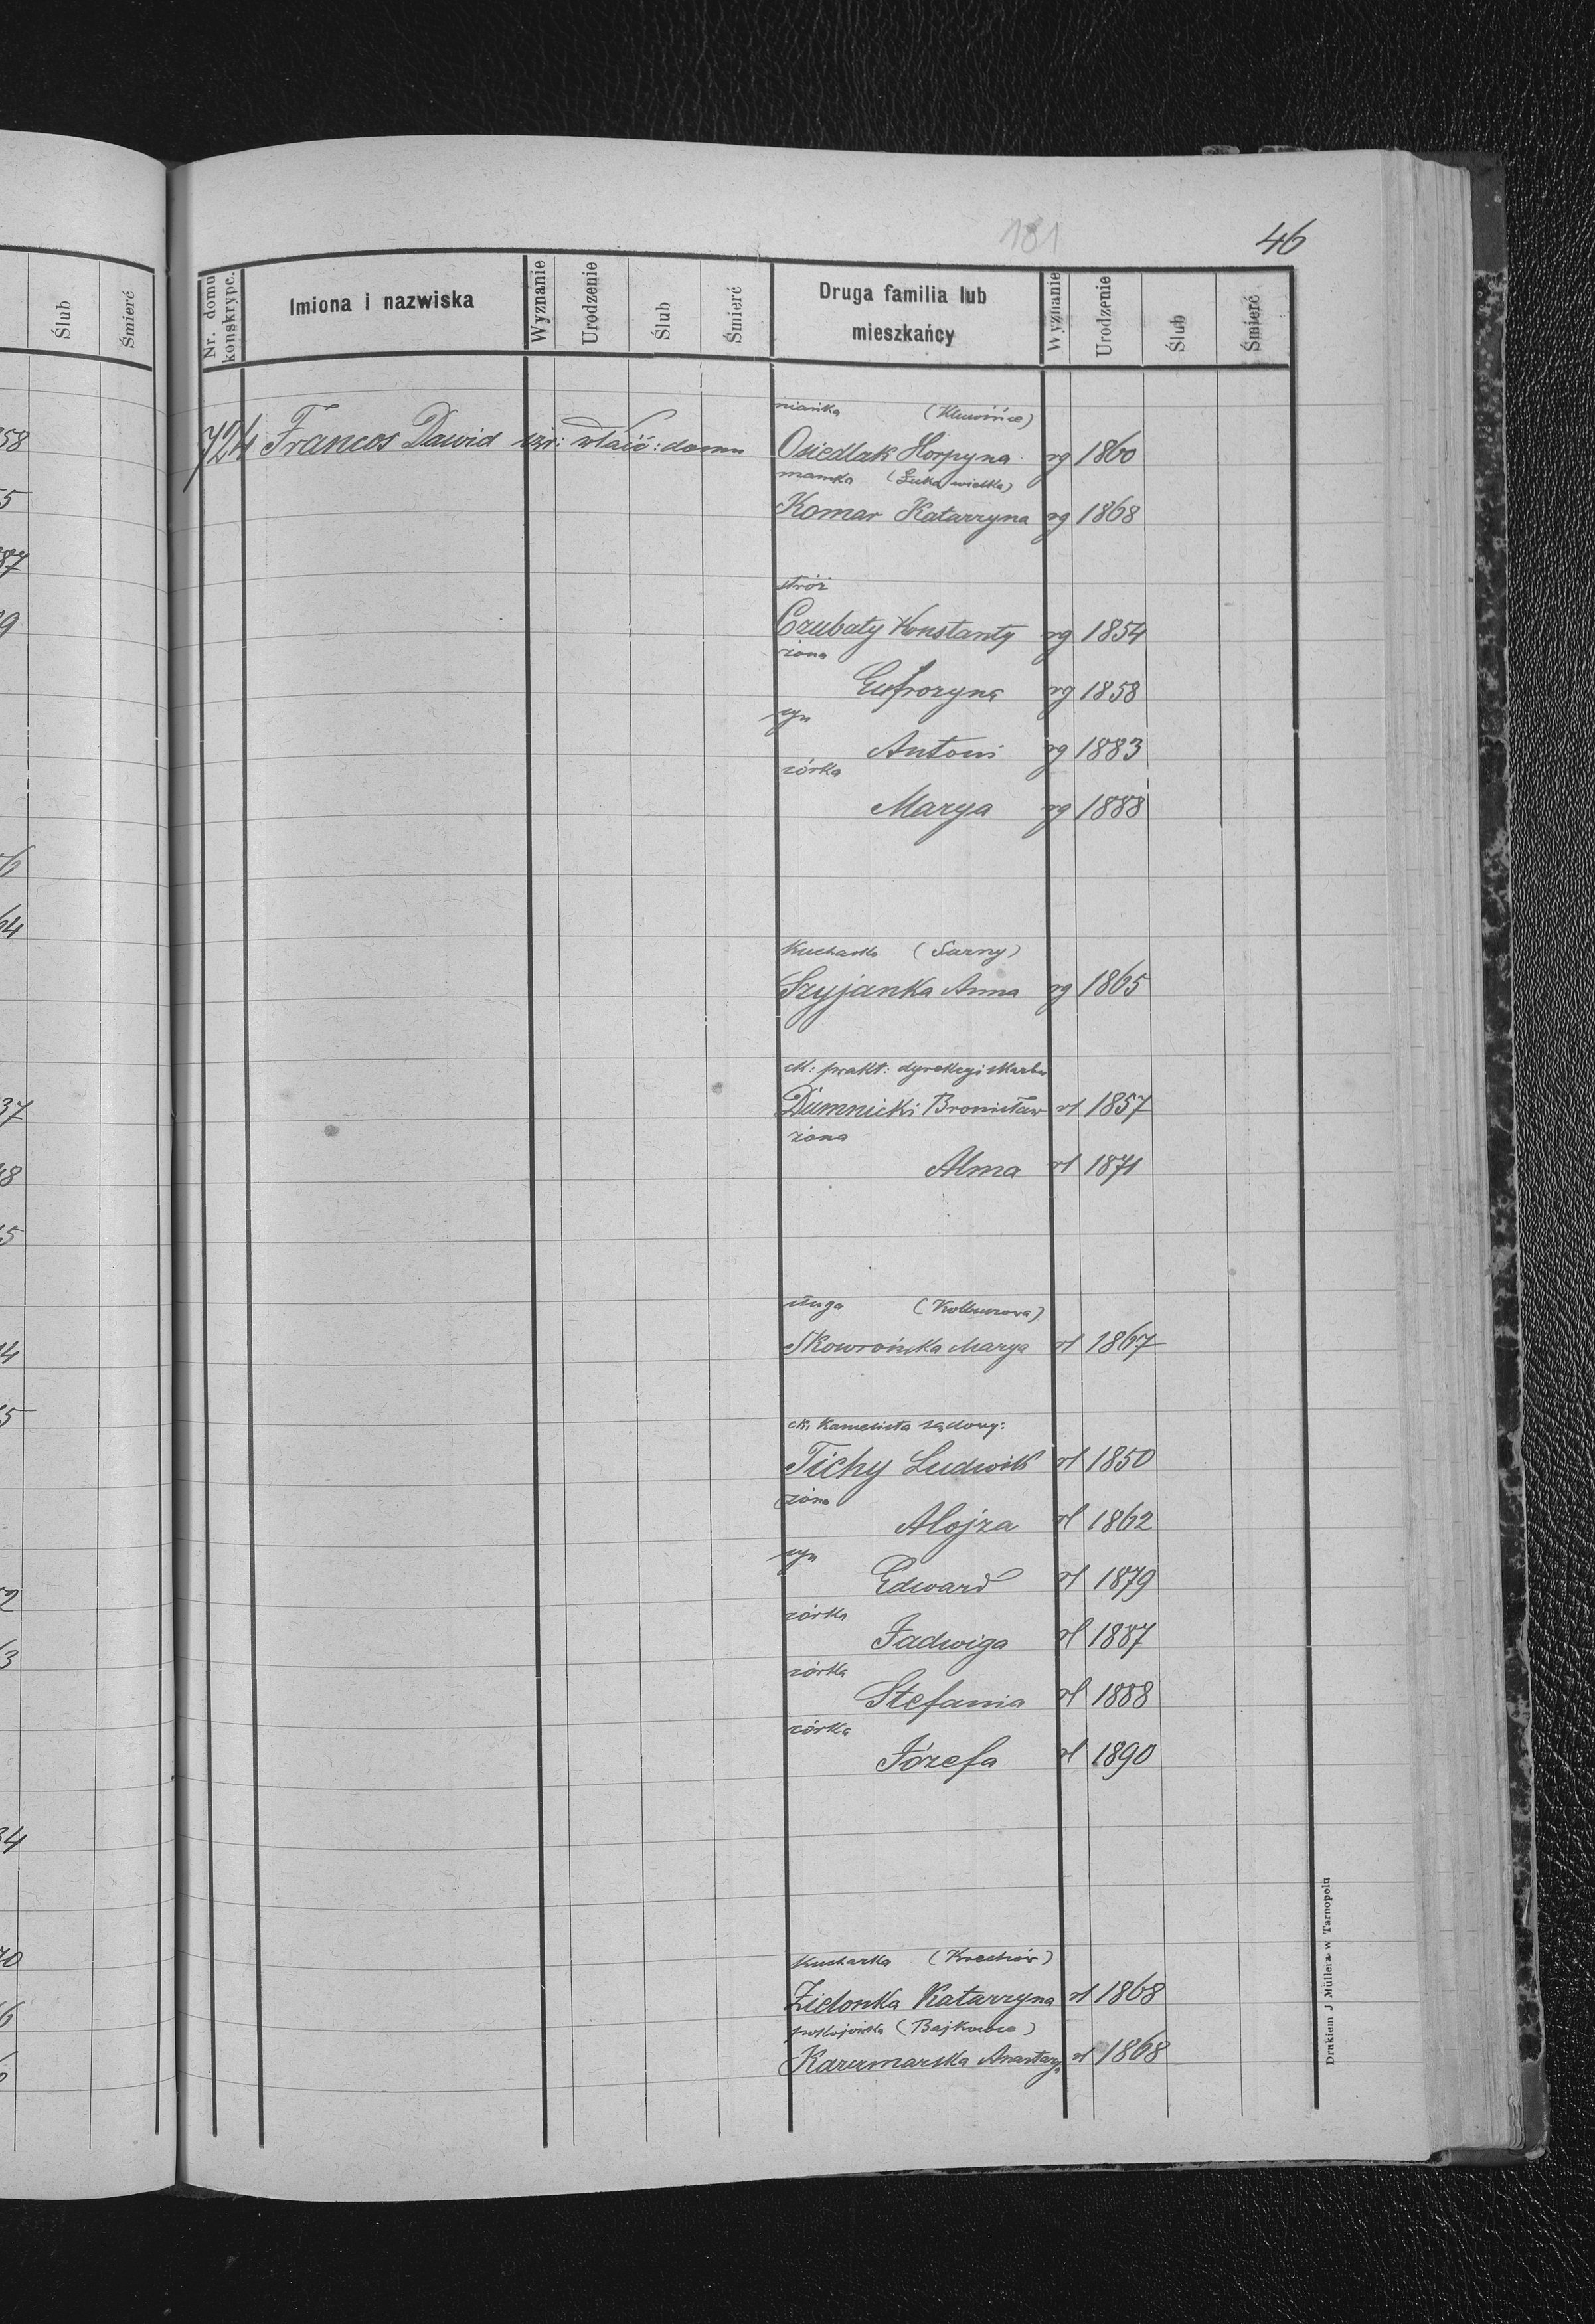 181
46
Ślub
Śmierć
Nr. domu konskrypc.
Imiona i nazwiska
Wyznanie
Urodzenie
Ślub
Śmierć
Druga familia lub
mieszkańcy
Wyznanie
Urodzenie
Ślub
Śmierć
niańka (Kluwińce)
724 Francos Dawid izr: właśc: domu Osiedlak Horpyna rg 1860
mamka (Łuka wielka)
Komar Katarzyna rg 1868
stróż
Czubaty Konstanty rg 1854
żona
Eufrozyna rg 1858
syn
Antoni rg 1883
córka
Marya rg 1888
Kucharka (Sarny)
Szyjanka Anna rg 1865
ck: prakt: dyrekcyi skarbu
Dumnicki Bronisław rl 1857
żona
Alma rl 1871
sługa (Kolbuszowa)
Skowrońska Marya rl 1867
ck. Kancelista sądowy:
Tichy Ludwik rl 1850
żona
Alojza rl 1862
syn
Edward rl 1879
córka
Jadwiga rl 1887
córka
Stefania rl 1888
córka
Józefa rl 1890
Kucharka (Krechów)
Zielonka Katarzyna rl 1868
pokojówka (Bajkowce)
Karczmarska Anastazya rl 1868
Drukiem J Müllera w Tarnopolu
58
5
87
9
6
64
37
48
5
4
5
2
3
34
70
6